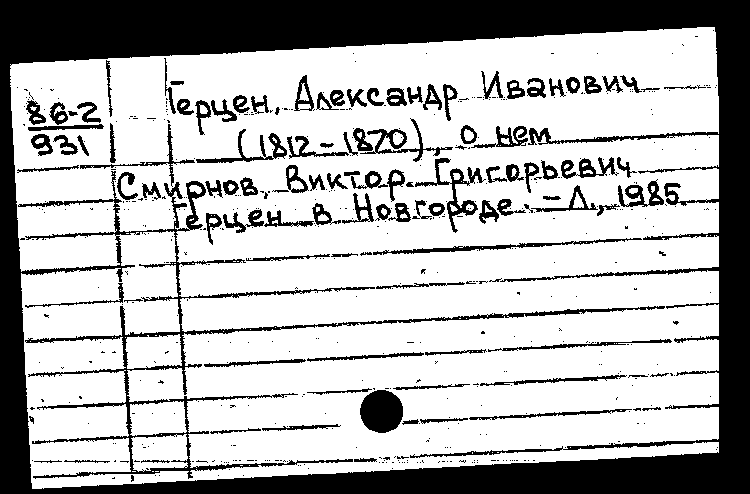 86-2
931
Герцен, Александр Иванович
(1812-1870), о нем
Смирнов, Виктор Григорьевич
Герцен в Новгороде. - Л., 1985